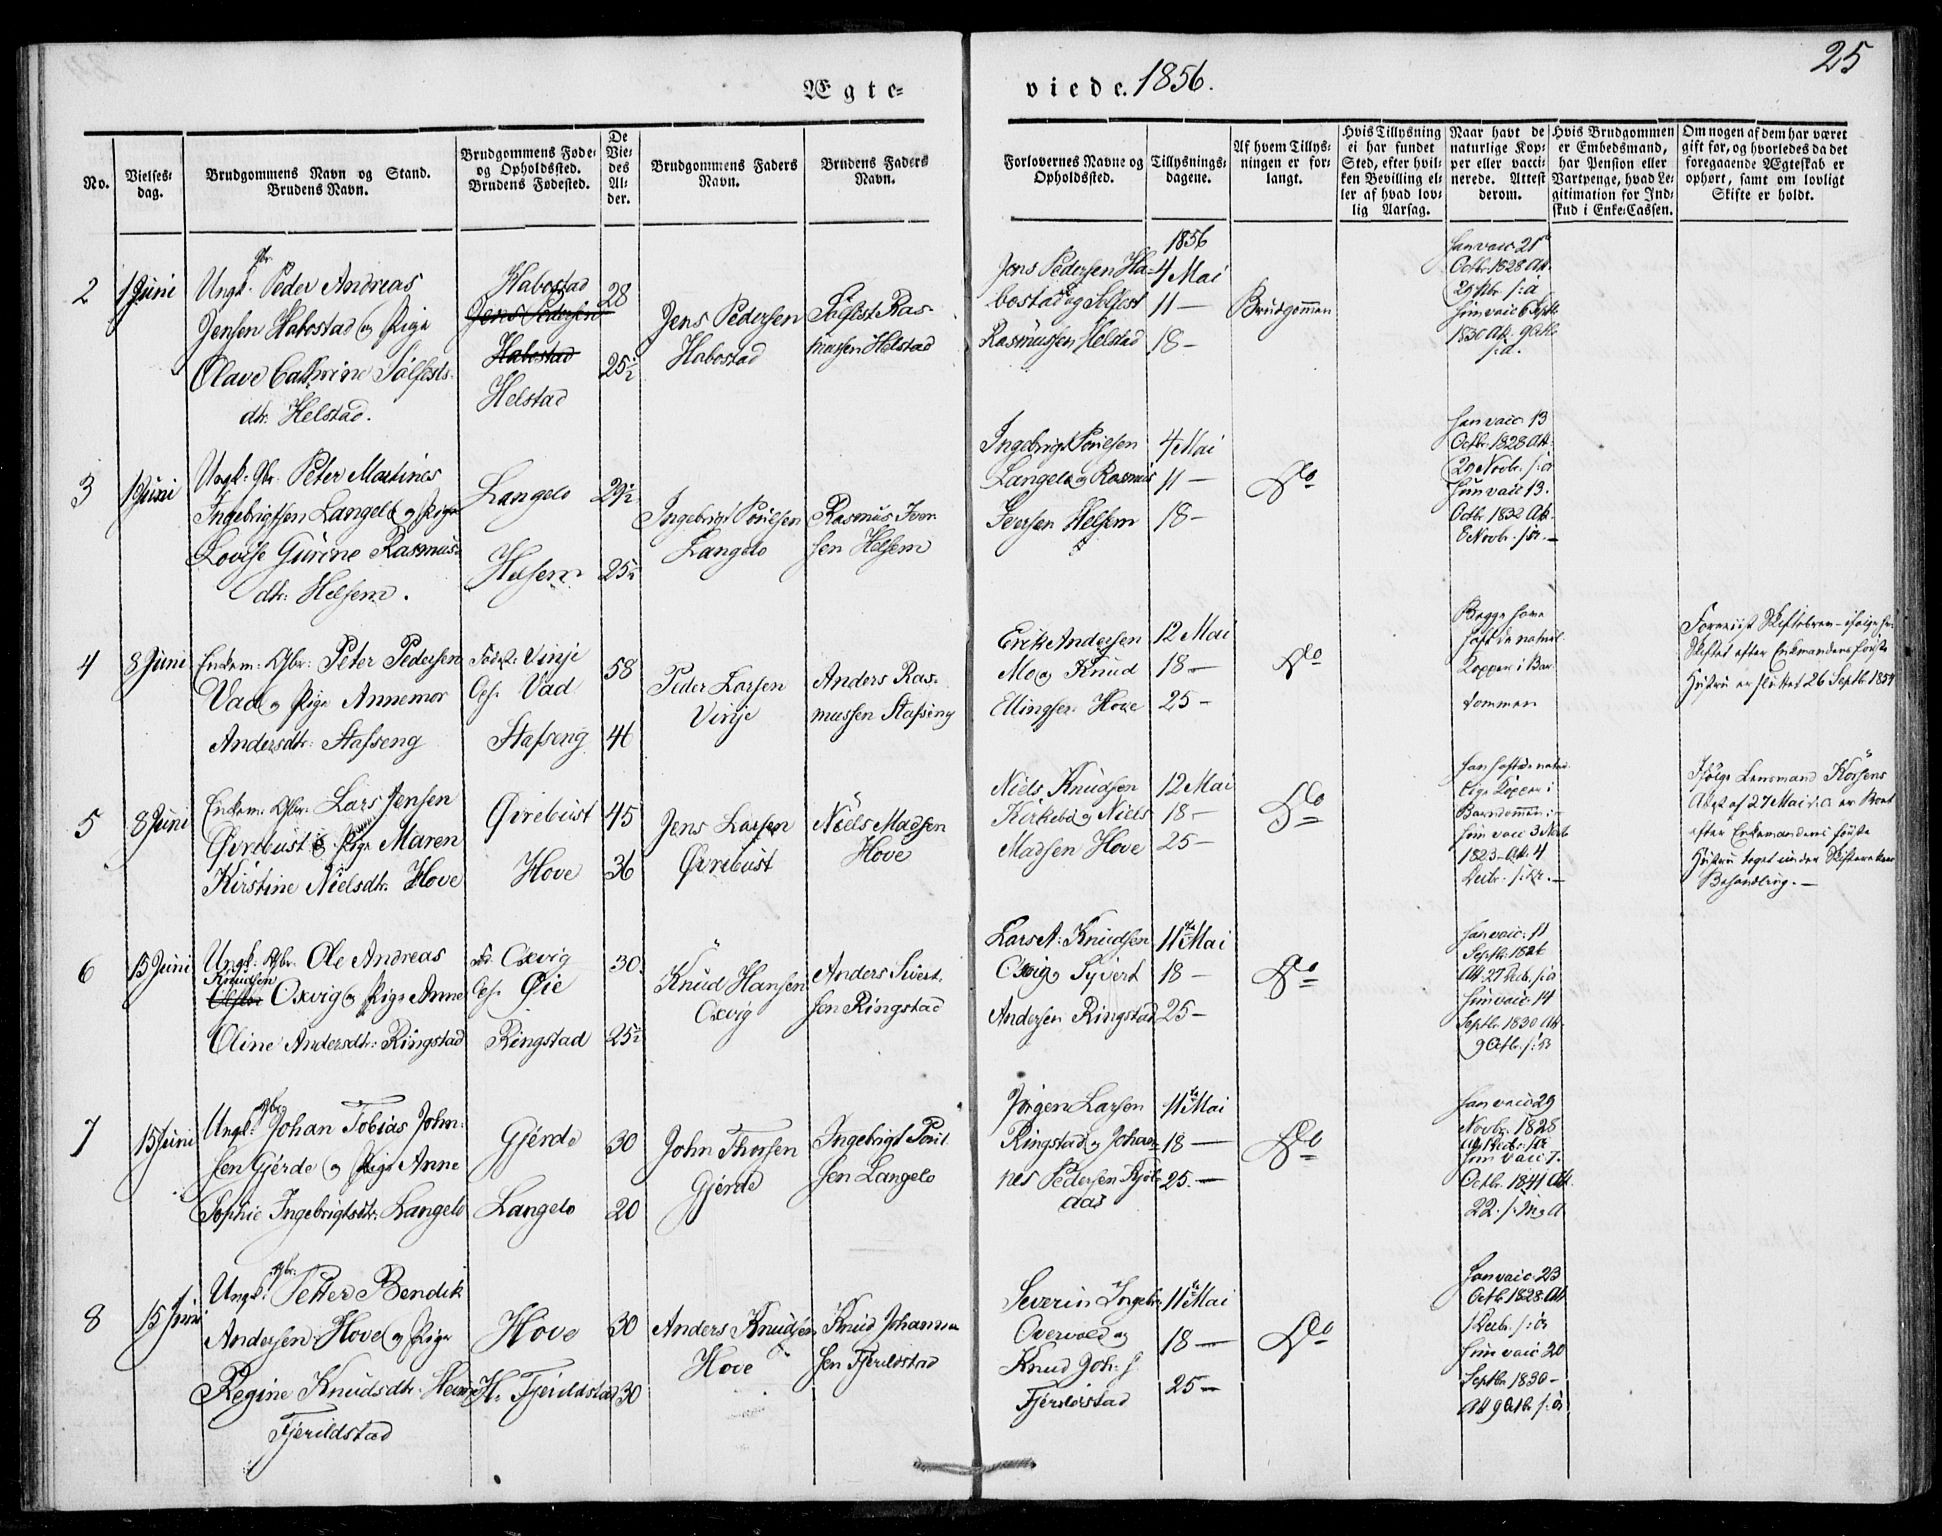 25
Ægte-
viede. 1856.
No.
Vielses-
dag.
Brudgommens Navn og Stand.
Brudens Navn.
Brudgommens Føde-
og Opholdssted.
Brudens Fødested.
De
Vie-
des
Al-
der.
Brudgommens Faders
Navn.
Brudens Faders
Navn.
Forlovernes Navne og
Opholdssted.
Tillysnings-
dagene.
Af hvem Tillys-
ningen er for-
langt.
Hvis Tillysning
ei har fundet
Sted, efter hvil-
ken Bevilling el-
ler af hvad lov-
lig Aarsag.
Naar havt de
naturlige Kop-
per eller vacci-
nerede. Attest
derom.
Hvis Brudgommen
er Embedsmand,
har Pension eller
Vartpenge, hvad Le-
gitimation for Ind-
skud i Enke-Cassen.
Om nogen af dem har været
gift før, og hvorledes da det
foregaaende Ægteskab er
ophørt, samt om lovligt
Skifte er holdt.
2
1 Juni
Gbr.
Ungk. Peder Andreas
Jensen Habostad og Pige
Olave Cathrine Sølfests-
dtr. Helstad.
Habostad
Jens Pedersen
Habostad
Helstad
28
25½
Jens Pedersen
Habostad
Sølfest Ras-
mussen Helstad
Jens Pedersen Ha-
bostad og Sølfest
Rasmussen Helstad
1856
4 Mai
11 —
18 —
Brudgommen
Han vacc. 21
Octbr. 1828 Att.
29 s: a
Hun vacc 6 Septb
1830 Att. 9 Octb.
s: a.
3
1 Juni
Ungk. Gbr. Peter Martinus
Ingebrigtsen Langelo og Pige
Lovise Gurine Rasmus-
dtr. Helsem.
Langelo
Helsem
29½
25½
Ingebrigt Poulsen
Langelo
Rasmus Iver-
sen Helsem
Ingebrigt Poulsen
Langelo og Rasmus
Iversen Helsem
4 Mai
11 —
18 —
Do
Han vacc. 13
Octbr. 1828 Att.
29 Novbr. s: a
Hun vacc 13.
Octbr. 1832 Att.
8 Novbr. s: a. —
4
8 Juni
Enkem: Gbr: Peter Pedersen
Vad og Pige Annemor
Andersdtr: Stafseng
Fødest: Vinje
Oph. Vad
Stafseng
58
41
Peder Larsen
Vinje
Anders Ras-
mussen Stafseng
Erik Andersen
Mo og Knud
Ellingsen Hove
12 Mai
18 —
25 —
Do
Begge have
haft de naturl.
Kopper i Bar-
dommen
Foreviist Skiftebrev ifølge hv.
Skiftet efter Enkemandens første
Hustru er sluttet 26 Septbr 1854
5
8 Juni
Enkem: Gbr: Lars Jensen
Øvrebust og Pige Maren
Kirstine Nielsdtr. Hove
Øvrebust
Hove
45
36
Jens Larsen
Øvrebust
Niels Madsen
Hove
Niels Knudsen
Kirkebø og Niels
Madsen Hove
12 Mai
18 —
25 —
Do
Han haft de natur-
lige Kopper i
Barndommen: —
Hun vacc 3 Novb
1823 — Att. 4
Decbr. s: Aar. —
Ifølge Lensmand Kosbens
Attest af 27 Mai d. a. er Boet
efter Enkemandens første
Hustru taget under Skifterettens
Behandling. —
6
15 Juni
Ungk: Gbr. Ole Andreas
Knudsen
Oxvig og Pige Anne
Oline Andersdtr: Ringstad
Fd. Oxvig
Oph. Øie
Ringstad
30
25½
Knud Hansen
Oxvig
Anders Sivert-
sen Ringstad
Lars A: Knudsen
Oxvig og Syvert
Andersen Ringstad
11te Mai
18 —
25 —
Do
Han vacc: 11
Septbr 1826
Att. 27 Decb. s: a
Hun vacc. 14
Septbr 1830 Att.
9 Octb. s: a
7
15 Juni
Gbr.
Ungk: Johan Tobias John-
sen Gjerde og Pige Anne
Sophie Ingebrigtsdtr: Langelo
Gjerde
Langelo
30
20
John Thorsen
Gjerde
Ingebrigt Poul-
sen Langelo
Jørgen Larsen
Ringstad og Johan-
nes Pedersen Kjøl-
aas
11te Mai
18 —
25. —
Do
Han vacc 29
Novbr. 1828
Att. 1 Decbr. s: Aar
Hun vacc 7.
Octbr. 1841 Att.
22. s: M og A
8
15 Juni
Gbr:
Ungk: Petter Bendik
Andersen Hove og Pige
Regine Knudsdtr:
Fjerildstad
Hove
H. Fjerildstad
30
30
Anders Knudsen
Hove
Knud Johanne-
sen Fjerildstad
Severin Ingebr.
Overvold og
Knud Joh: s
Fjerildstad
11te Mai
18 —
25 —
Do
Han vacc. 23
Octb. 1828. Att
1 Decbr. s: Aar
Hun vacc 20
Septbr 1830 —
Att 9 Octb. s: Aar